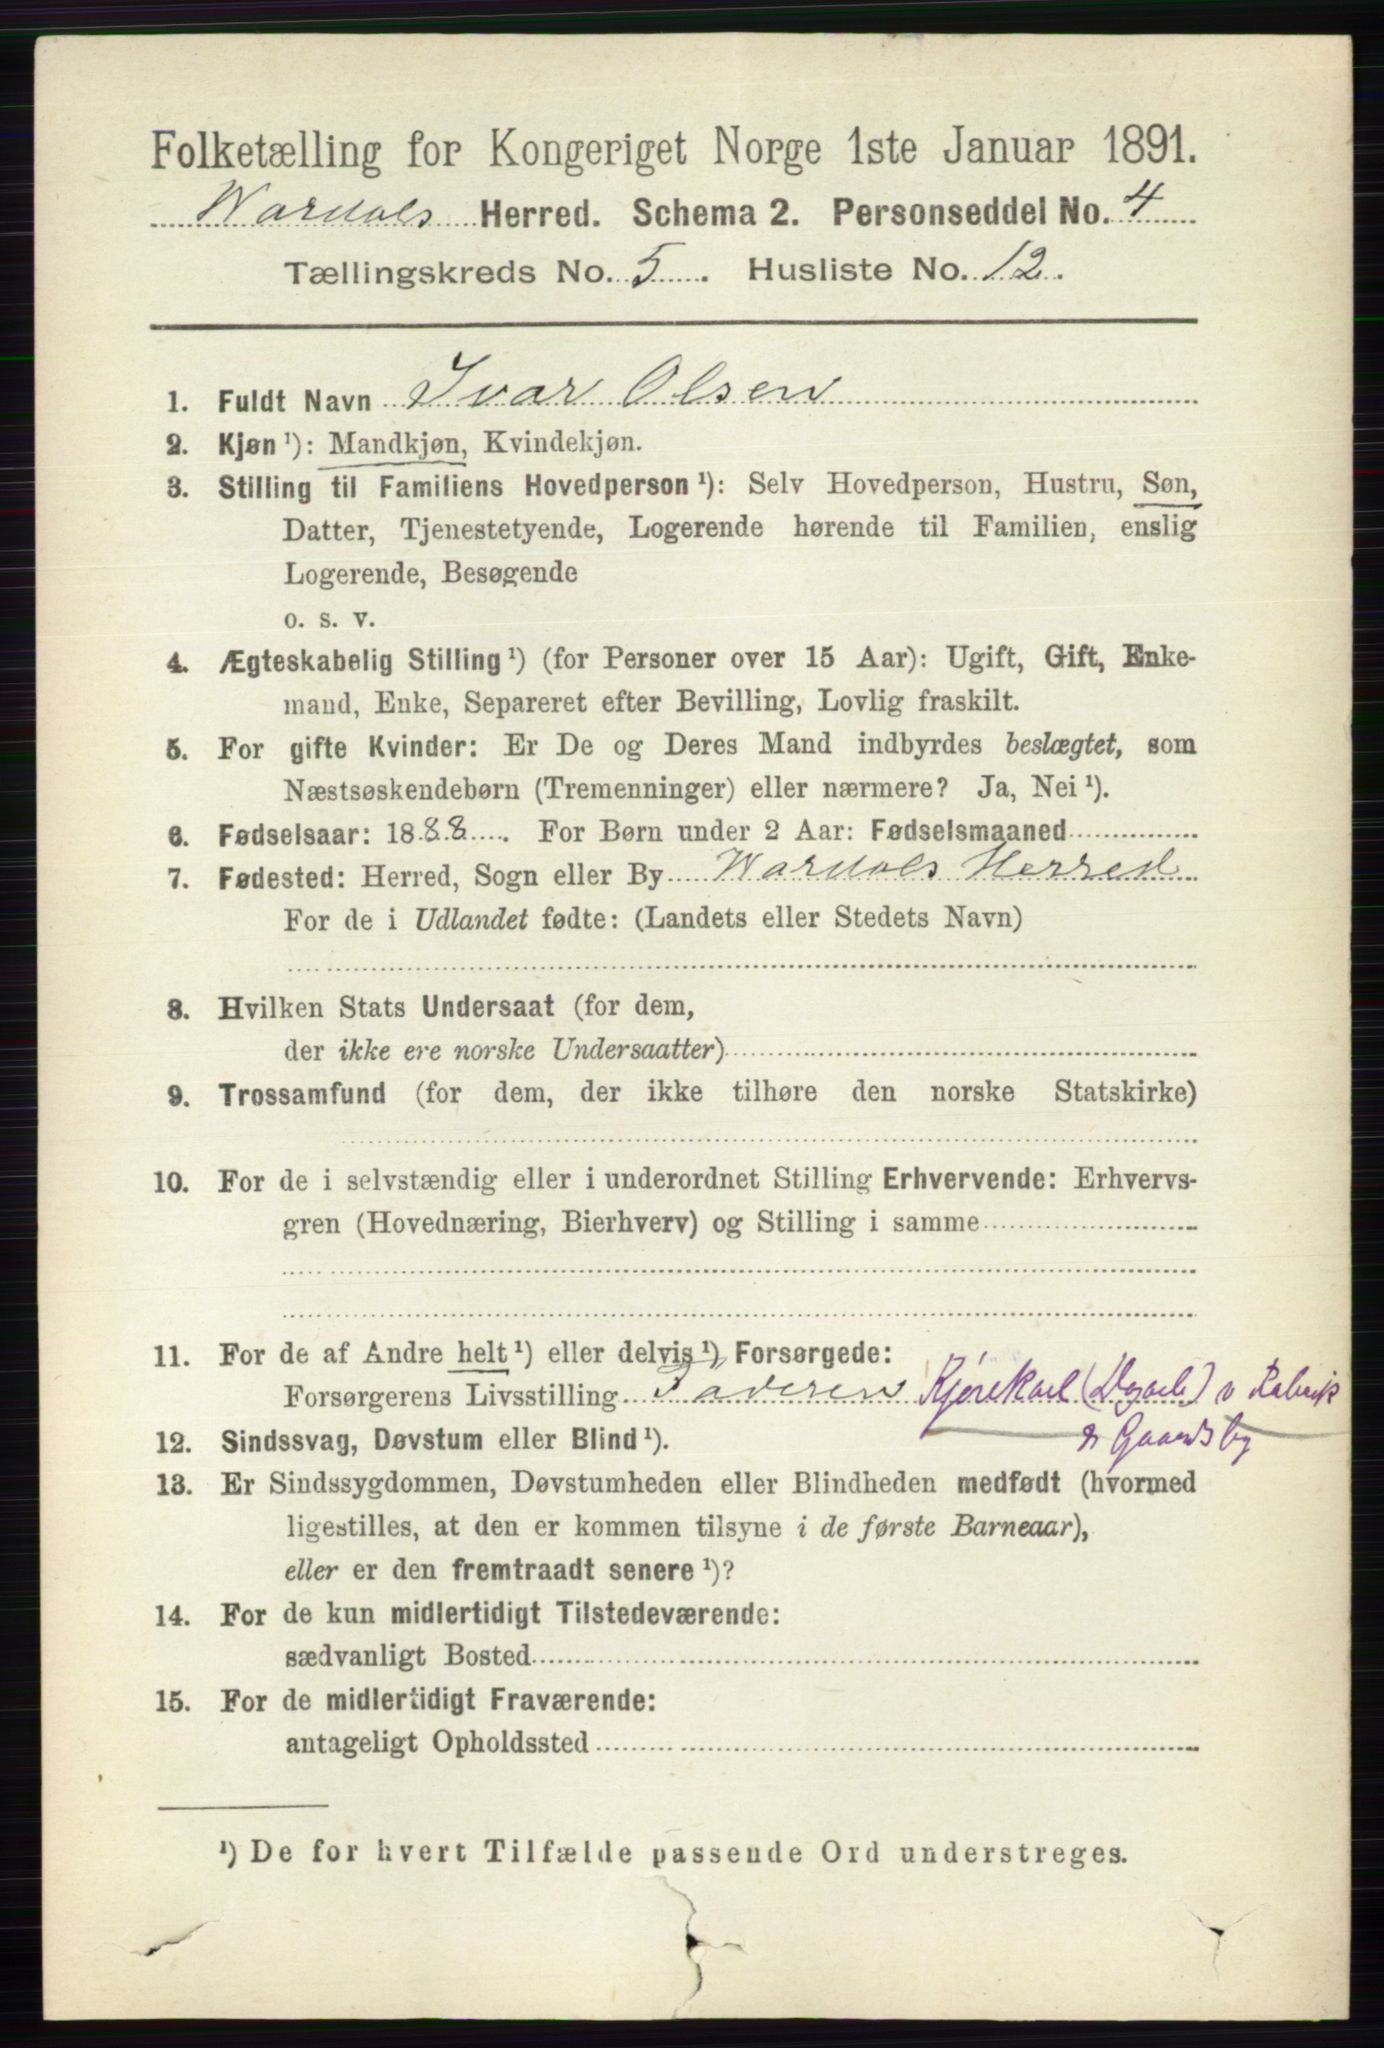 Folketælling for Kongeriget Norge 1ste Januar 1891.
Wardals Herred. Schema 2. Personseddel No. 4
Tællingskreds No. 5. Husliste No. 12.
1. Fuldt Navn Ivar Olsen
2. Kjøn¹): Mandkjøn, Kvindekjøn.
3. Stilling til Familiens Hovedperson¹): Selv Hovedperson, Hustru, Søn,
Datter, Tjenestetyende, Logerende hørende til Familien, enslig
Logerende, Besøgende
o. s. v.
4. Ægteskabelig Stilling¹) (for Personer over 15 Aar): Ugift, Gift, Enke-
mand, Enke, Separeret efter Bevilling, Lovlig fraskilt.
5. For gifte Kvinder: Er De og Deres Mand indbyrdes beslægtet, som
Næstsøskendebørn (Tremenninger) eller nærmere? Ja, Nei¹).
6. Fødselsaar: 1888. For Børn under 2 Aar: Fødselsmaaned
7. Fødested: Herred, Sogn eller By Wardals Herred
For de i Udlandet fødte: (Landets eller Stedets Navn)
8. Hvilken Stats Undersaat (for dem,
der ikke ere norske Undersaatter)
9. Trossamfund (for dem, der ikke tilhøre den norske Statskirke)
10. For de i selvstændig eller i underordnet Stilling Erhvervende: Erhvervs-
gren (Hovednæring, Bierhverv) og Stilling i samme
11. For de af Andre helt¹) eller delvis¹) Forsørgede:
Forsørgerens Livsstilling Faderen Kjørekarl v
12. Sindssvag, Døvstum eller Blind¹). Gaardsbg
13. Er Sindssygdommen, Døvstumheden eller Blindheden medfødt (hvormed
ligestilles, at den er kommen tilsyne i de første Barneaar),
eller er den fremtraadt senere¹)?
14. For de kun midlertidigt Tilstedeværende:
sædvanligt Bosted
15. For de midlertidigt Fraværende:
antageligt Opholdssted
¹) De for hvert Tilfælde passende Ord understreges.